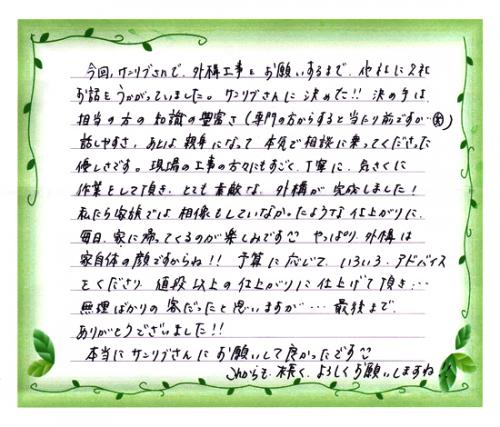 今回、サンリブさんで、外構工事をお願いするまで、他社に2社
お話をうかがっていました。サンリブさんに決めた!! 決め手は
担当の方の知識の豊富さ(専門の方からすると当たり前ですが…)
話しやすさ、あとは親身になって本気で相談に乗ってくださった
優しさです。現場の工事の方々にもすごく、丁寧に、気さくに
作業をして頂き、とても素敵な、外構が完成しました!
私たち家族では想像としていなかったような仕上がりに、
毎日、家に帰ってくるのが楽しみです♡ やっぱり、外構は
家自体の顔ですからね!! 予算に応じて、いろいろ、アドバイス
をくださり、値段以上の仕上がりに仕上げて頂き…
無理ばかりの客だったと思いますが… 最後まで、
ありがとうございました!!
本当にサンリブさんにお願いして良かったです♡
これからも、末長く、よろしくお願いしますね!!